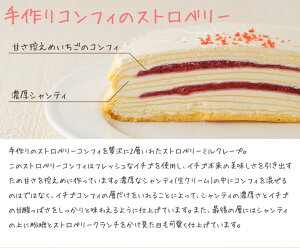 手作りコンフィのストロベリー
甘さ控えめいちごのコンフィ
濃厚シャンティ
手作りのストロベリーコンフィを贅沢に2層いれたストロベリーミルクレープ。
このストロベリーコンフィはフレッシュなイチゴを使用し、イチゴ本来の美味しさを引き出す
ため甘さを控えめに作っています。濃厚なシャンティ(生クリーム)の中にコンフィを混ぜる
のではなく、イチゴコンフィの層だけをいれることによって、シャンティの濃厚さとイチゴ
の甘酸っぱさをしっかりと味わえるように仕上げています。また、最後の層にはシャンティ
の上に粉糖とストロベリークランチをかけ見た目も可愛く仕上げています。